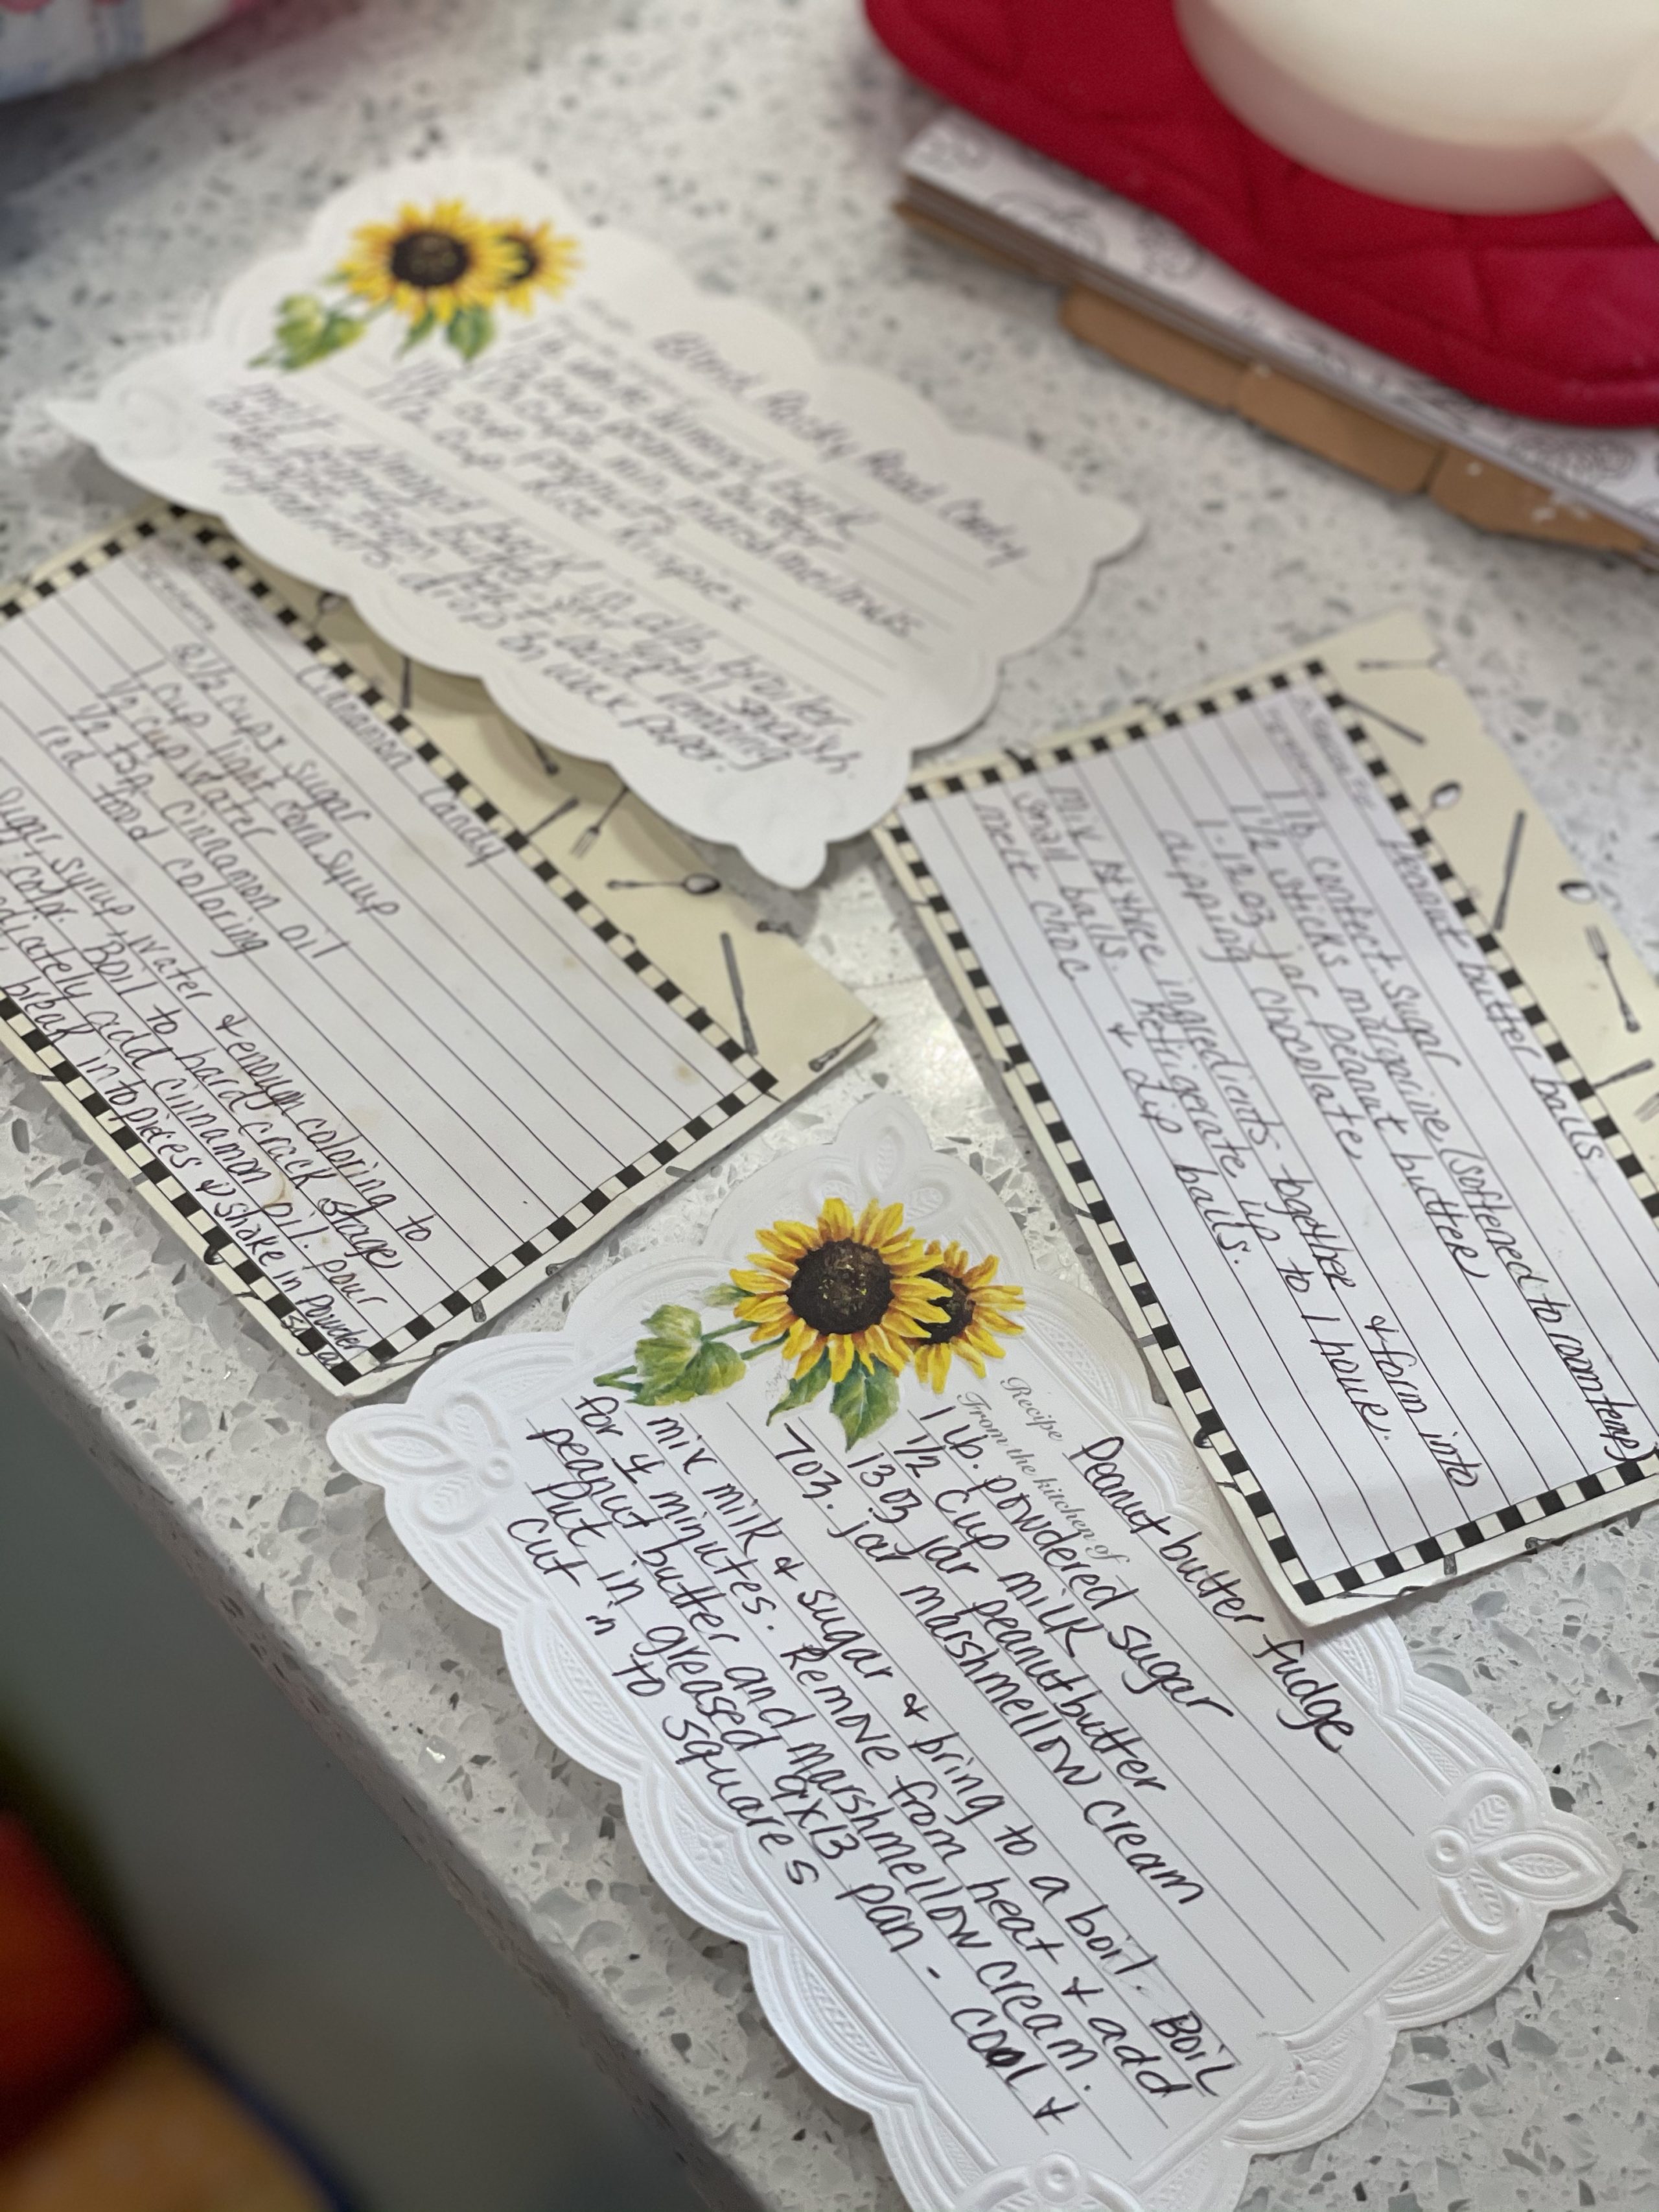 Blond Rocky Road Candy
1 lb almond bark
1/2 cup peanut butter
1 1/2 cups mini marshmellows
1 1/2 cup peanuts
1 1/2 cup rice krispies
melt almond bark in dbl. broiler
add peanut butter. Stir until smooth.
ingredients drop on wax paper.
Cinnamon Candy
2 1/2 cups sugar
1 cup light corn syrup
1/2 cup water
1/2 tsp cinnamon oil
red food coloring
sugar, syrup, water & enough coloring to
color. Boil to hard crack stage,
add cinnamon oil. pour
break into pieces & shake in Powder
Peanut butter balls
1 lb confect. sugar
1 1/2 sticks margerine (softened to room temp)
1- 12 oz jar peanut butter
dipping chocolate
mix 1st three ingredients together & form into
small balls. Refrigerate up to 1 hour.
melt choc & dip balls.
Recipe Peanut butter fudge
From the kitchen of
1 lb. powdered sugar
1/2 cup milk
13 oz jar peanut butter
7 oz. jar marshmellow cream
mix milk & sugar & bring to a boil. Boil
for 4 minutes. Remove from heat & add
peanut butter and marshmellow cream.
Put in greased 9x13 pan - cool &
cut in to squares